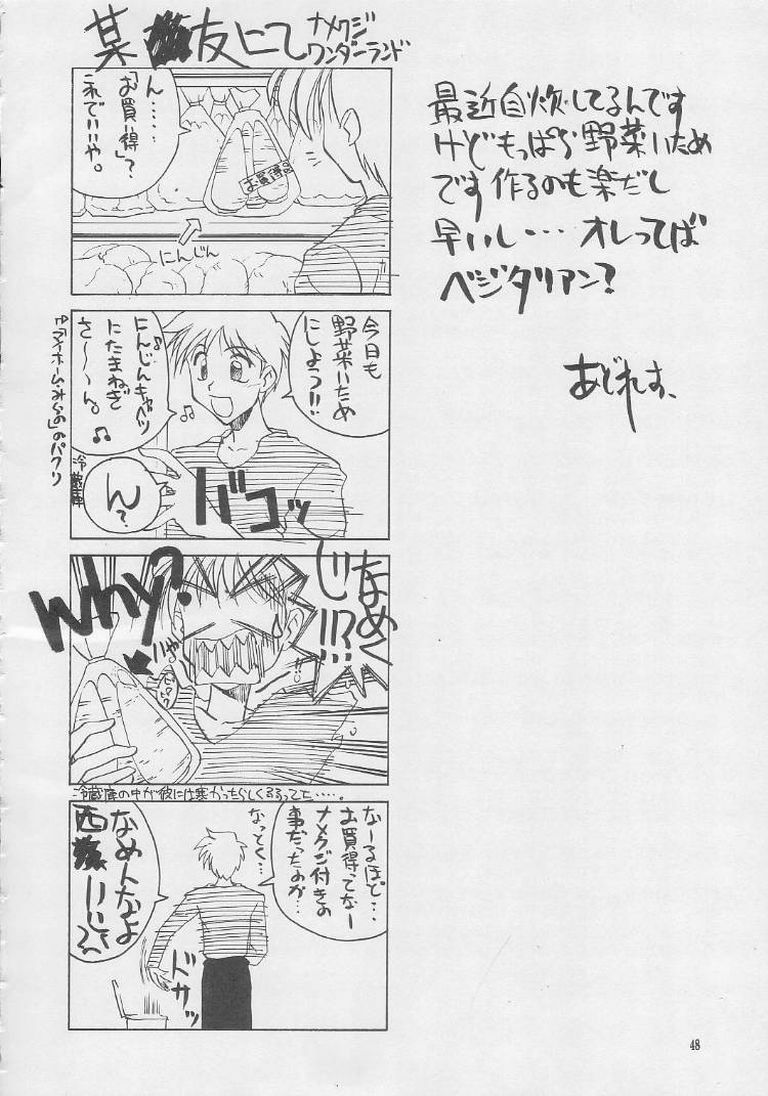 某 友にて ナメクジ
ワンダーランド
ん……
「お買い得」?
これでいいや。
お買得品
にんじん
今日も
野菜いため
にしよう!!
にんじんキャベツ
にたまねぎ
さ〜〜ん。
冷蔵庫
ん?
バコッ
↳「マイホームみらの」のパクリ
なめく
じ!!?
Why?
冷蔵庫の中が彼には寒かったらしくくるってた……。
なーるほど…
お買得ってなー
ナメクジ付きの
事だったのか…
なっとく…
なめんなよ
西 いいぞ
ドサッ
最近自炊してるんです
けどもっぱら野菜いため
です作るのも楽だし
早いし…オレってば
ベジタリアン?
あどれす、
48